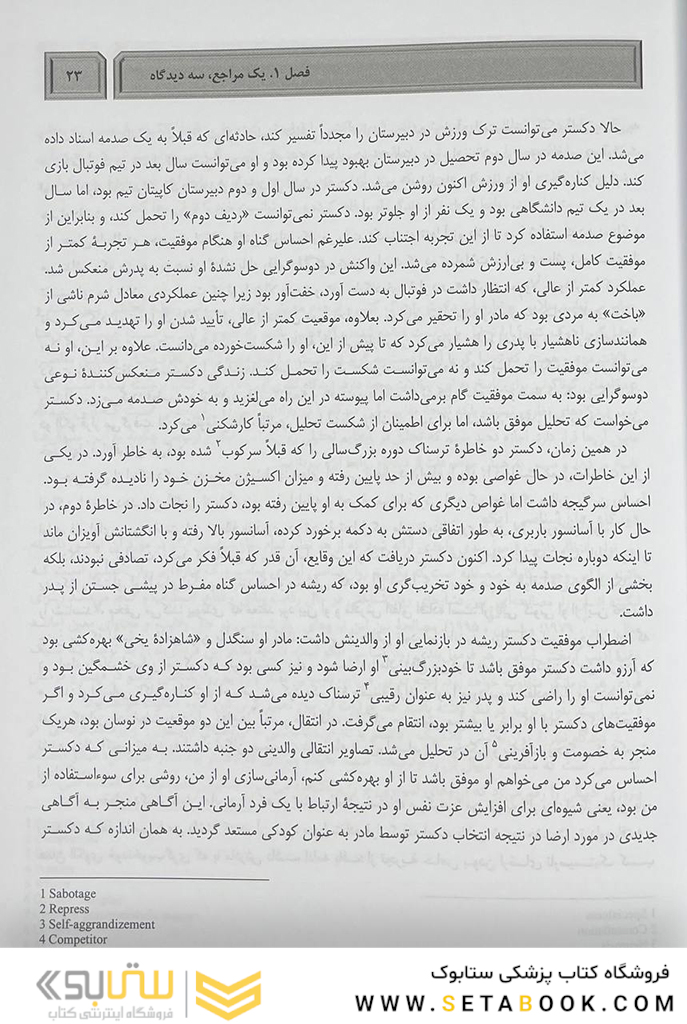 فصل ۱. یک مراجع، سه دیدگاه
۲۳
حالا دکستر می‌توانست ترک ورزش در دبیرستان را مجدداً تفسیر کند، حادثه‌ای که قبلاً به یک صدمه اسناد داده
می‌شد. این صدمه در سال دوم تحصیل در دبیرستان بهبود پیدا کرده بود و او می‌توانست سال بعد در تیم فوتبال بازی
کند. دلیل کناره‌گیری او از ورزش اکنون روشن می‌شد. دکستر در سال اول و دوم دبیرستان کاپیتان تیم بود، اما سال
بعد در یک تیم دانشگاهی بود و یک نفر از او جلوتر بود. دکستر نمی‌توانست «ردیف دوم» را تحمل کند، و بنابراین از
موضوع صدمه استفاده کرد تا از این تجربه اجتناب کند. علیرغم احساس گناه او هنگام موفقیت، هر تجربهٔ کمتر از
موفقیت کامل، پست و بی‌ارزش شمرده می‌شد. این واکنش در دوسوگرایی حل نشدهٔ او نسبت به پدرش منعکس شد.
عملکرد کمتر از عالی، که انتظار داشت در فوتبال به دست آورد، خفت‌آور بود زیرا چنین عملکردی معادل شرم ناشی از
«باخت» به مردی بود که مادر او را تحقیر می‌کرد. بعلاوه، موقعیت کمتر از عالی، تأیید شدن او را تهدید می‌کرد و
همانندسازی ناهشیار با پدری را هشیار می‌کرد که تا پیش از این، او را شکست‌خورده می‌دانست. علاوه بر این، او نه
می‌توانست موفقیت را تحمل کند و نه می‌توانست شکست را تحمل کند. زندگی دکستر منعکس‌کنندهٔ نوعی
دوسوگرایی بود: به سمت موفقیت گام برمی‌داشت اما پیوسته در این راه می‌لغزید و به خودش صدمه می‌زد. دکستر
می‌خواست که تحلیل موفق باشد، اما برای اطمینان از شکست تحلیل، مرتباً کارشکنی۱ می‌کرد.
در همین زمان، دکستر دو خاطرهٔ ترسناک دوره بزرگ‌سالی را که قبلاً سرکوب۲ شده بود، به خاطر آورد. در یکی
از این خاطرات، در حال غواصی بوده و بیش از حد پایین رفته و میزان اکسیژن مخزن خود را نادیده گرفته بود.
احساس سرگیجه داشت اما غواص دیگری که برای کمک به او پایین رفته بود، دکستر را نجات داد. در خاطرهٔ دوم، در
حال کار با آسانسور باربری، به طور اتفاقی دستش به دکمه برخورد کرده، آسانسور بالا رفته و با انگشتانش آویزان ماند
تا اینکه دوباره نجات پیدا کرد. اکنون دکستر دریافت که این وقایع، آن قدر که قبلاً فکر می‌کرد، تصادفی نبودند، بلکه
بخشی از الگوی صدمه به خود و خود تخریب‌گری او بود، که ریشه در احساس گناه مفرط در پیشی جستن از پدر
داشت.
اضطراب موفقیت دکستر ریشه در بازنمایی او از والدینش داشت: مادر او سنگدل و «شاهزادهٔ یخی» بهره‌کشی بود
که آرزو داشت دکستر موفق باشد تا خودبزرگ‌بینی۳ او ارضا شود و نیز کسی بود که دکستر از وی خشمگین بود و
نمی‌توانست او را راضی کند و پدر نیز به عنوان رقیبی۴ ترسناک دیده می‌شد که از او کناره‌گیری می‌کرد و اگر
موفقیت‌های دکستر با او برابر یا بیشتر بود، انتقام می‌گرفت. در انتقال، مرتباً بین این دو موقعیت در نوسان بود، هریک
منجر به خصومت و بازآفرینی۵ آن در تحلیل می‌شد. تصاویر انتقالی والدینی دو جنبه داشتند. به میزانی که دکستر
احساس می‌کرد من می‌خواهم او موفق باشد تا از او بهره‌کشی کنم، آرمانی‌سازی او از من، روشی برای سوءاستفاده از
من بود، یعنی شیوه‌ای برای افزایش عزت نفس او در نتیجهٔ ارتباط با یک فرد آرمانی. این آگاهی منجر به آگاهی
جدیدی در مورد ارضا در نتیجه انتخاب دکستر توسط مادر به عنوان کودکی مستعد گردید. به همان اندازه که دکستر
1 Sabotage
2 Repress
3 Self-aggrandizement
4 Competitor
فروشگاه کتاب پزشکی ستابوک
WWW.SETABOOK.COM
ستابوک
فروشگاه اینترنتی کتاب